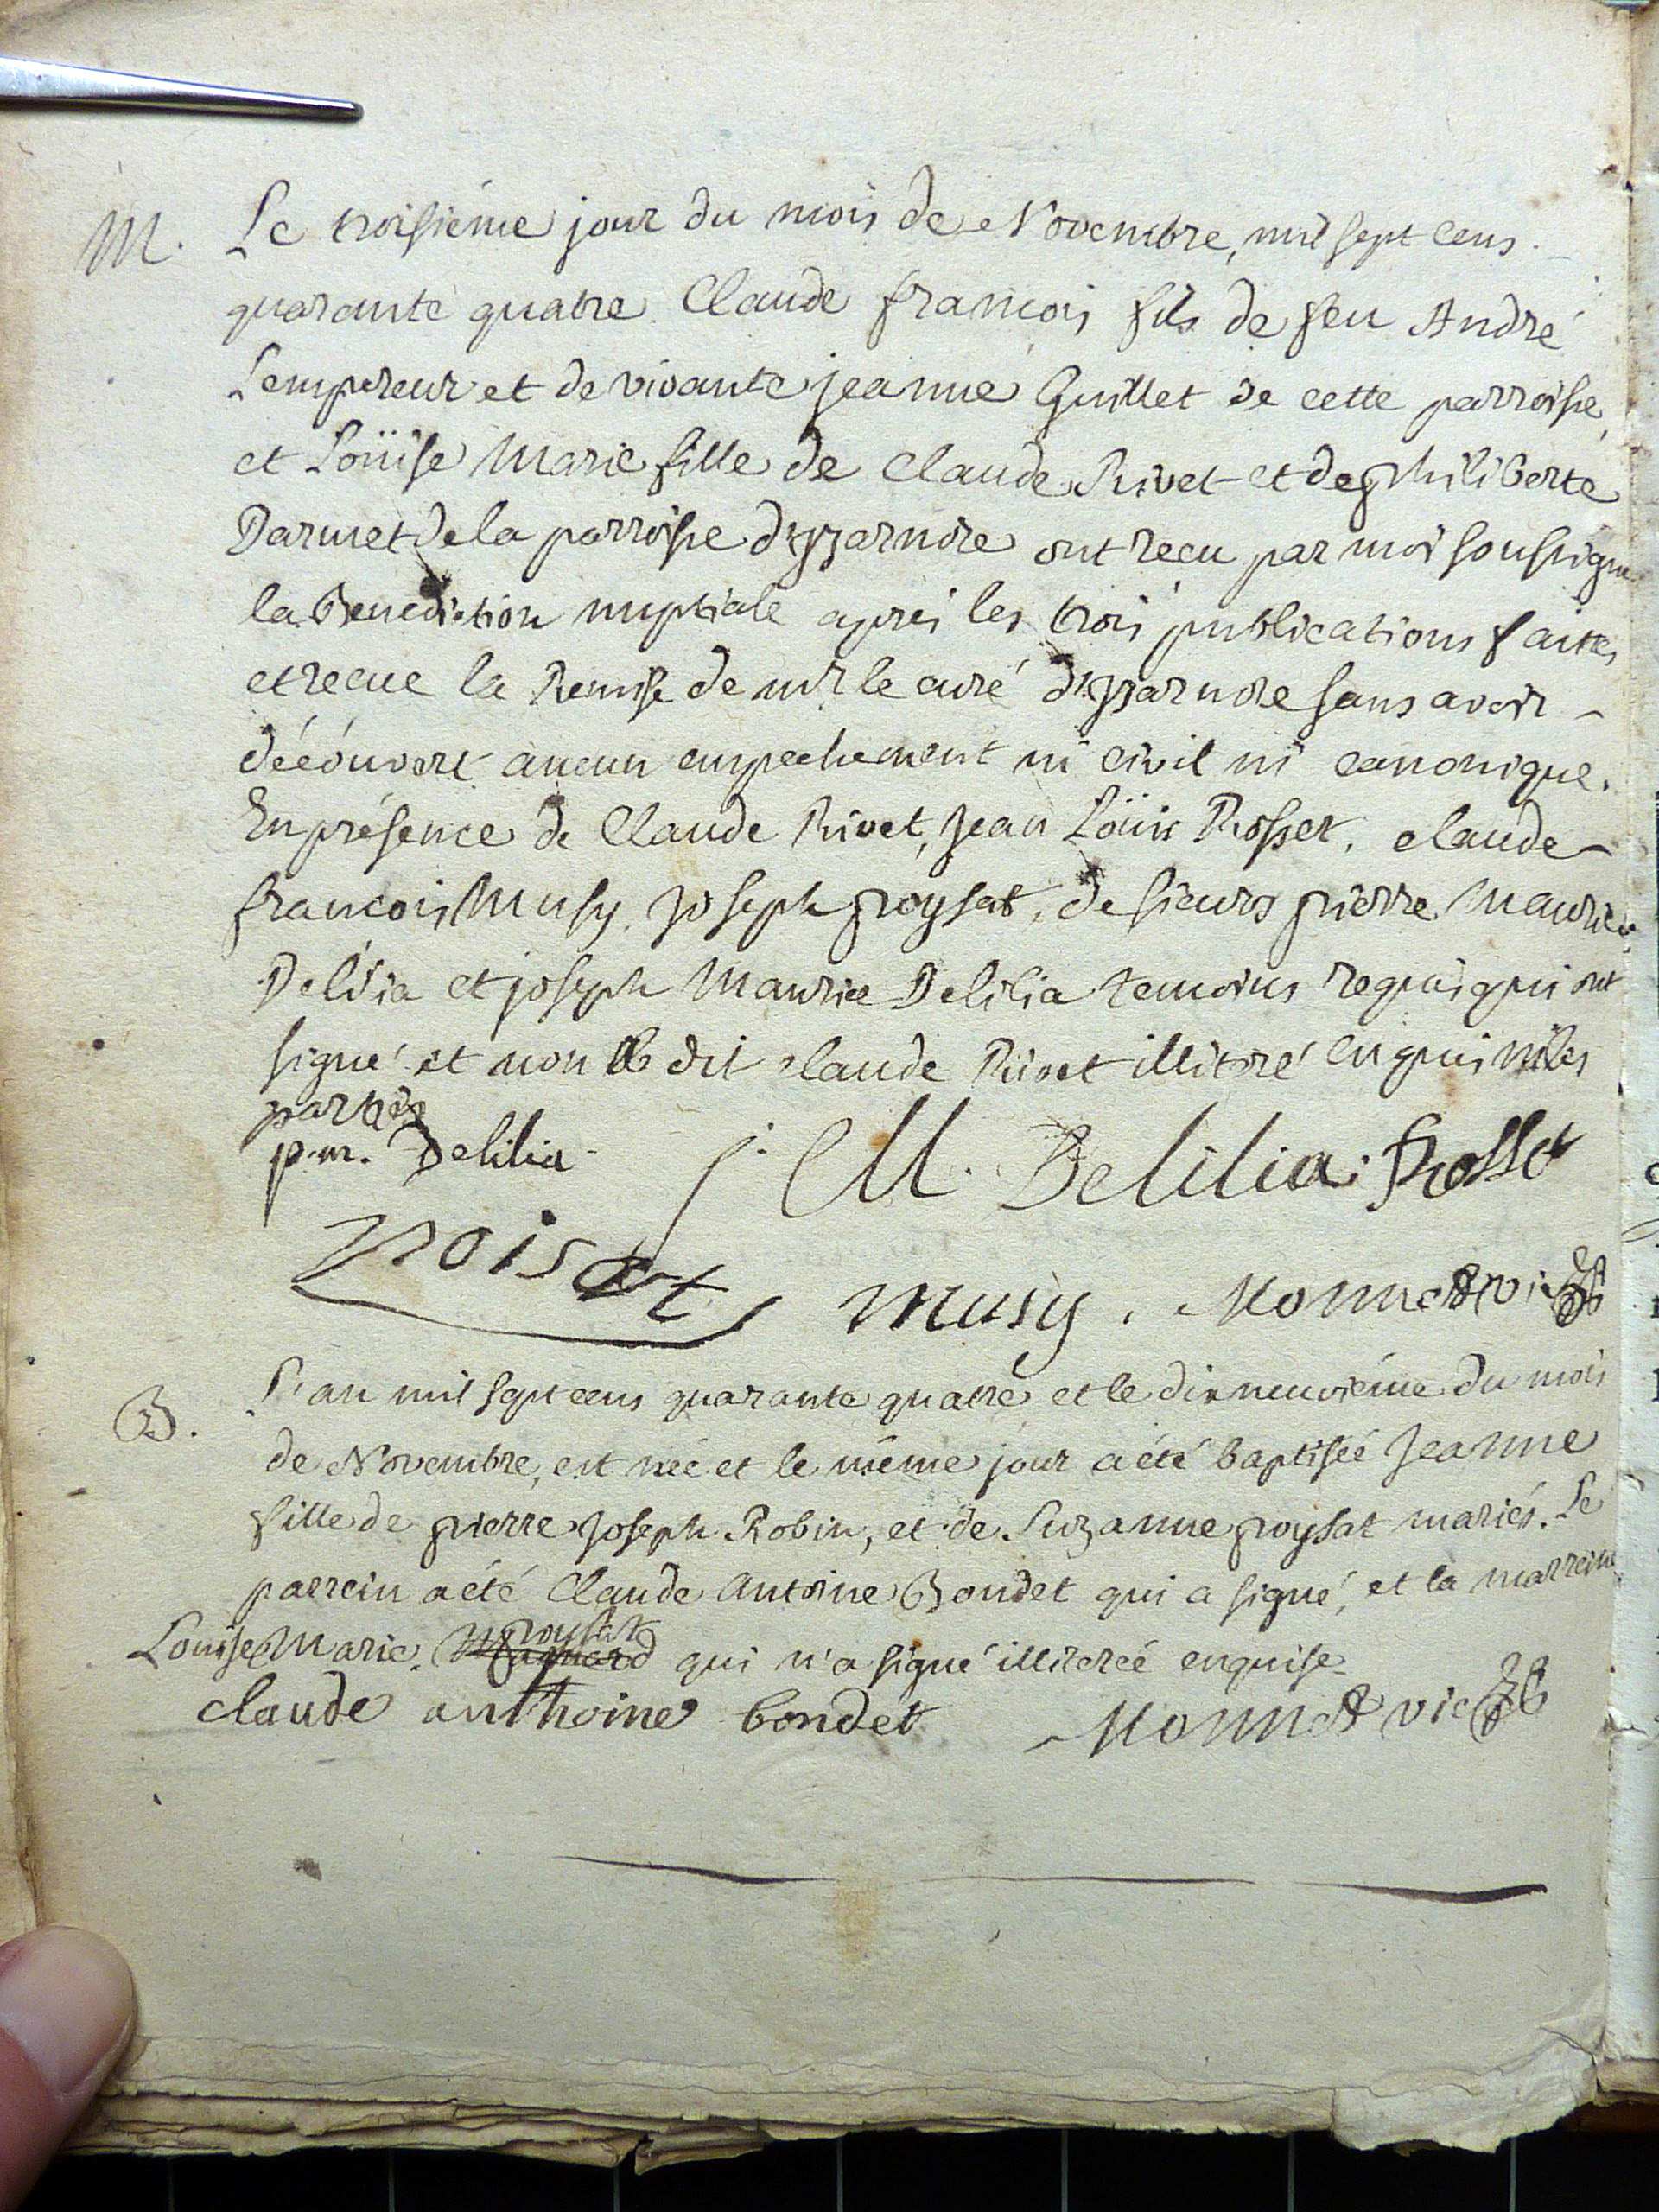 M. Le troisiéme jour du mois de Novembre, mil sept cens
quarante quatre Claude francois fils de feu André
Lempereur et de vivante jeanne Guillet de cette parroisse,
et Loüise Marie fille de Claude Rivet et de philiberte
Darmet de la parroisse d'yzarnore ont recu par moi soussigné
la Benediction nuptiale aprés les trois publications faites
et recue la Remise de mr le curé d'yzarnore sans avoir
découvert aucun empechement ni civil ni canonique.
En présence de Claude Rivet, Jean Loüis Rosset, claude
francois Musy, Joseph poysat, de sieurs pierre Maurice
Delilia et joseph Maurice Delilia temoins requis qui ont
signé et non le dit claude Rivet illitéré enquis ni les
parties
p.m. Delilia j. M. Delilia. Rosset
poisat musy. Monnet vic
B. L'an mil sept cens quarante quatre et le dixneuviéme du mois
de Novembre, est née et le même jour a été baptisée Jeanne
fille de pierre Joseph Robin, et de Suzanne poysat mariés. Le
parrein a été Claude Antoine Bondet qui a signé, et la marreine
poysat
Louise Marie qui n'a signé illiterée enquise
claude anthoine bondet Monnet vic